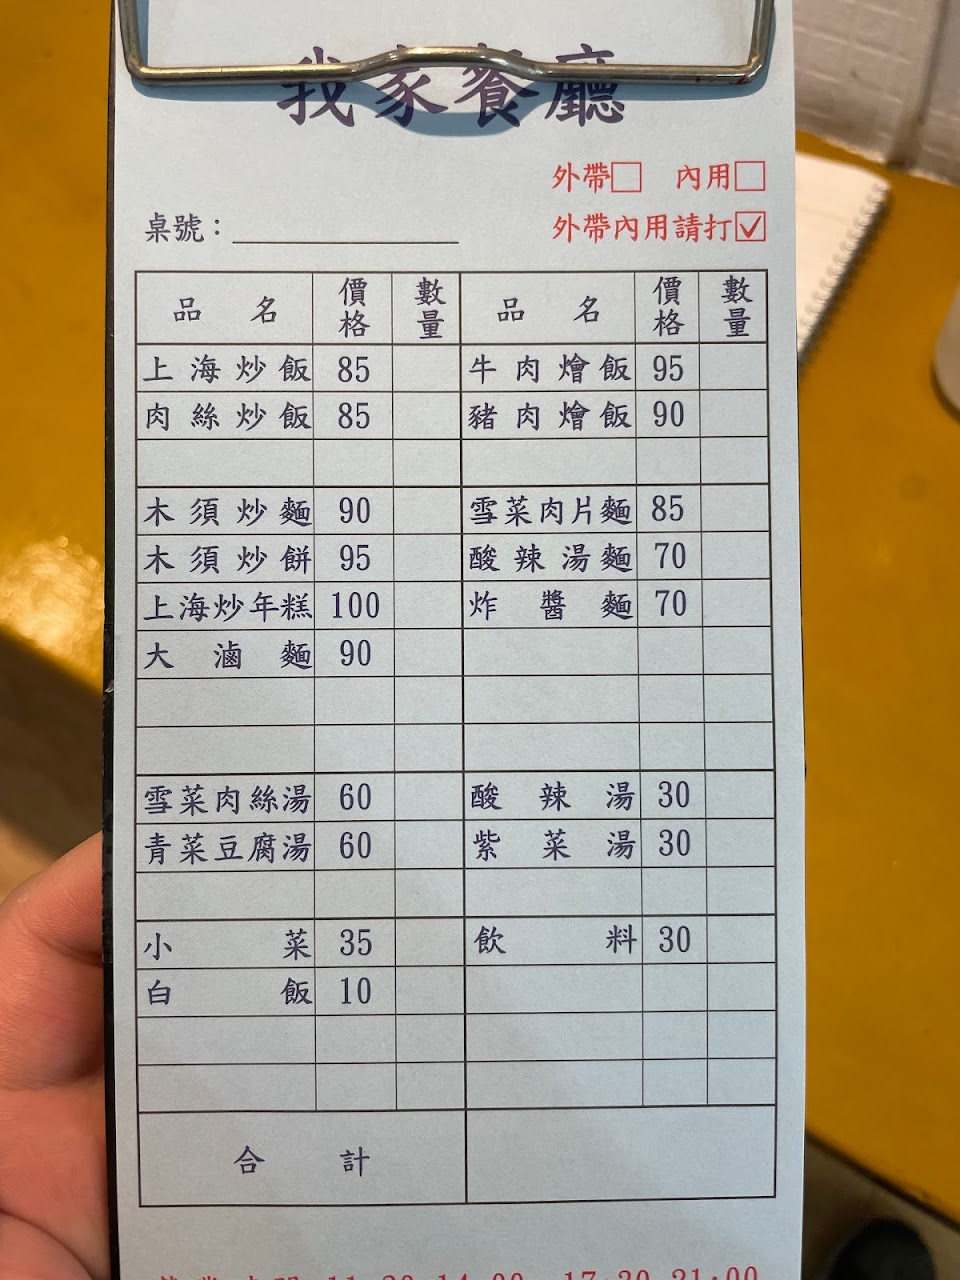 我家餐廳
外帶□ 內用□
桌號：
外帶內用請打☑
品名 價格 數量 品名 價格 數量
上海炒飯 85 牛肉燴飯 95
肉絲炒飯 85 豬肉燴飯 90
木須炒麵 90 雪菜肉片麵 85
木須炒餅 95 酸辣湯麵 70
上海炒年糕 100 炸醬麵 70
大滷麵 90
雪菜肉絲湯 60 酸辣湯 30
青菜豆腐湯 60 紫菜湯 30
小菜 35 飲料 30
白飯 10
合計